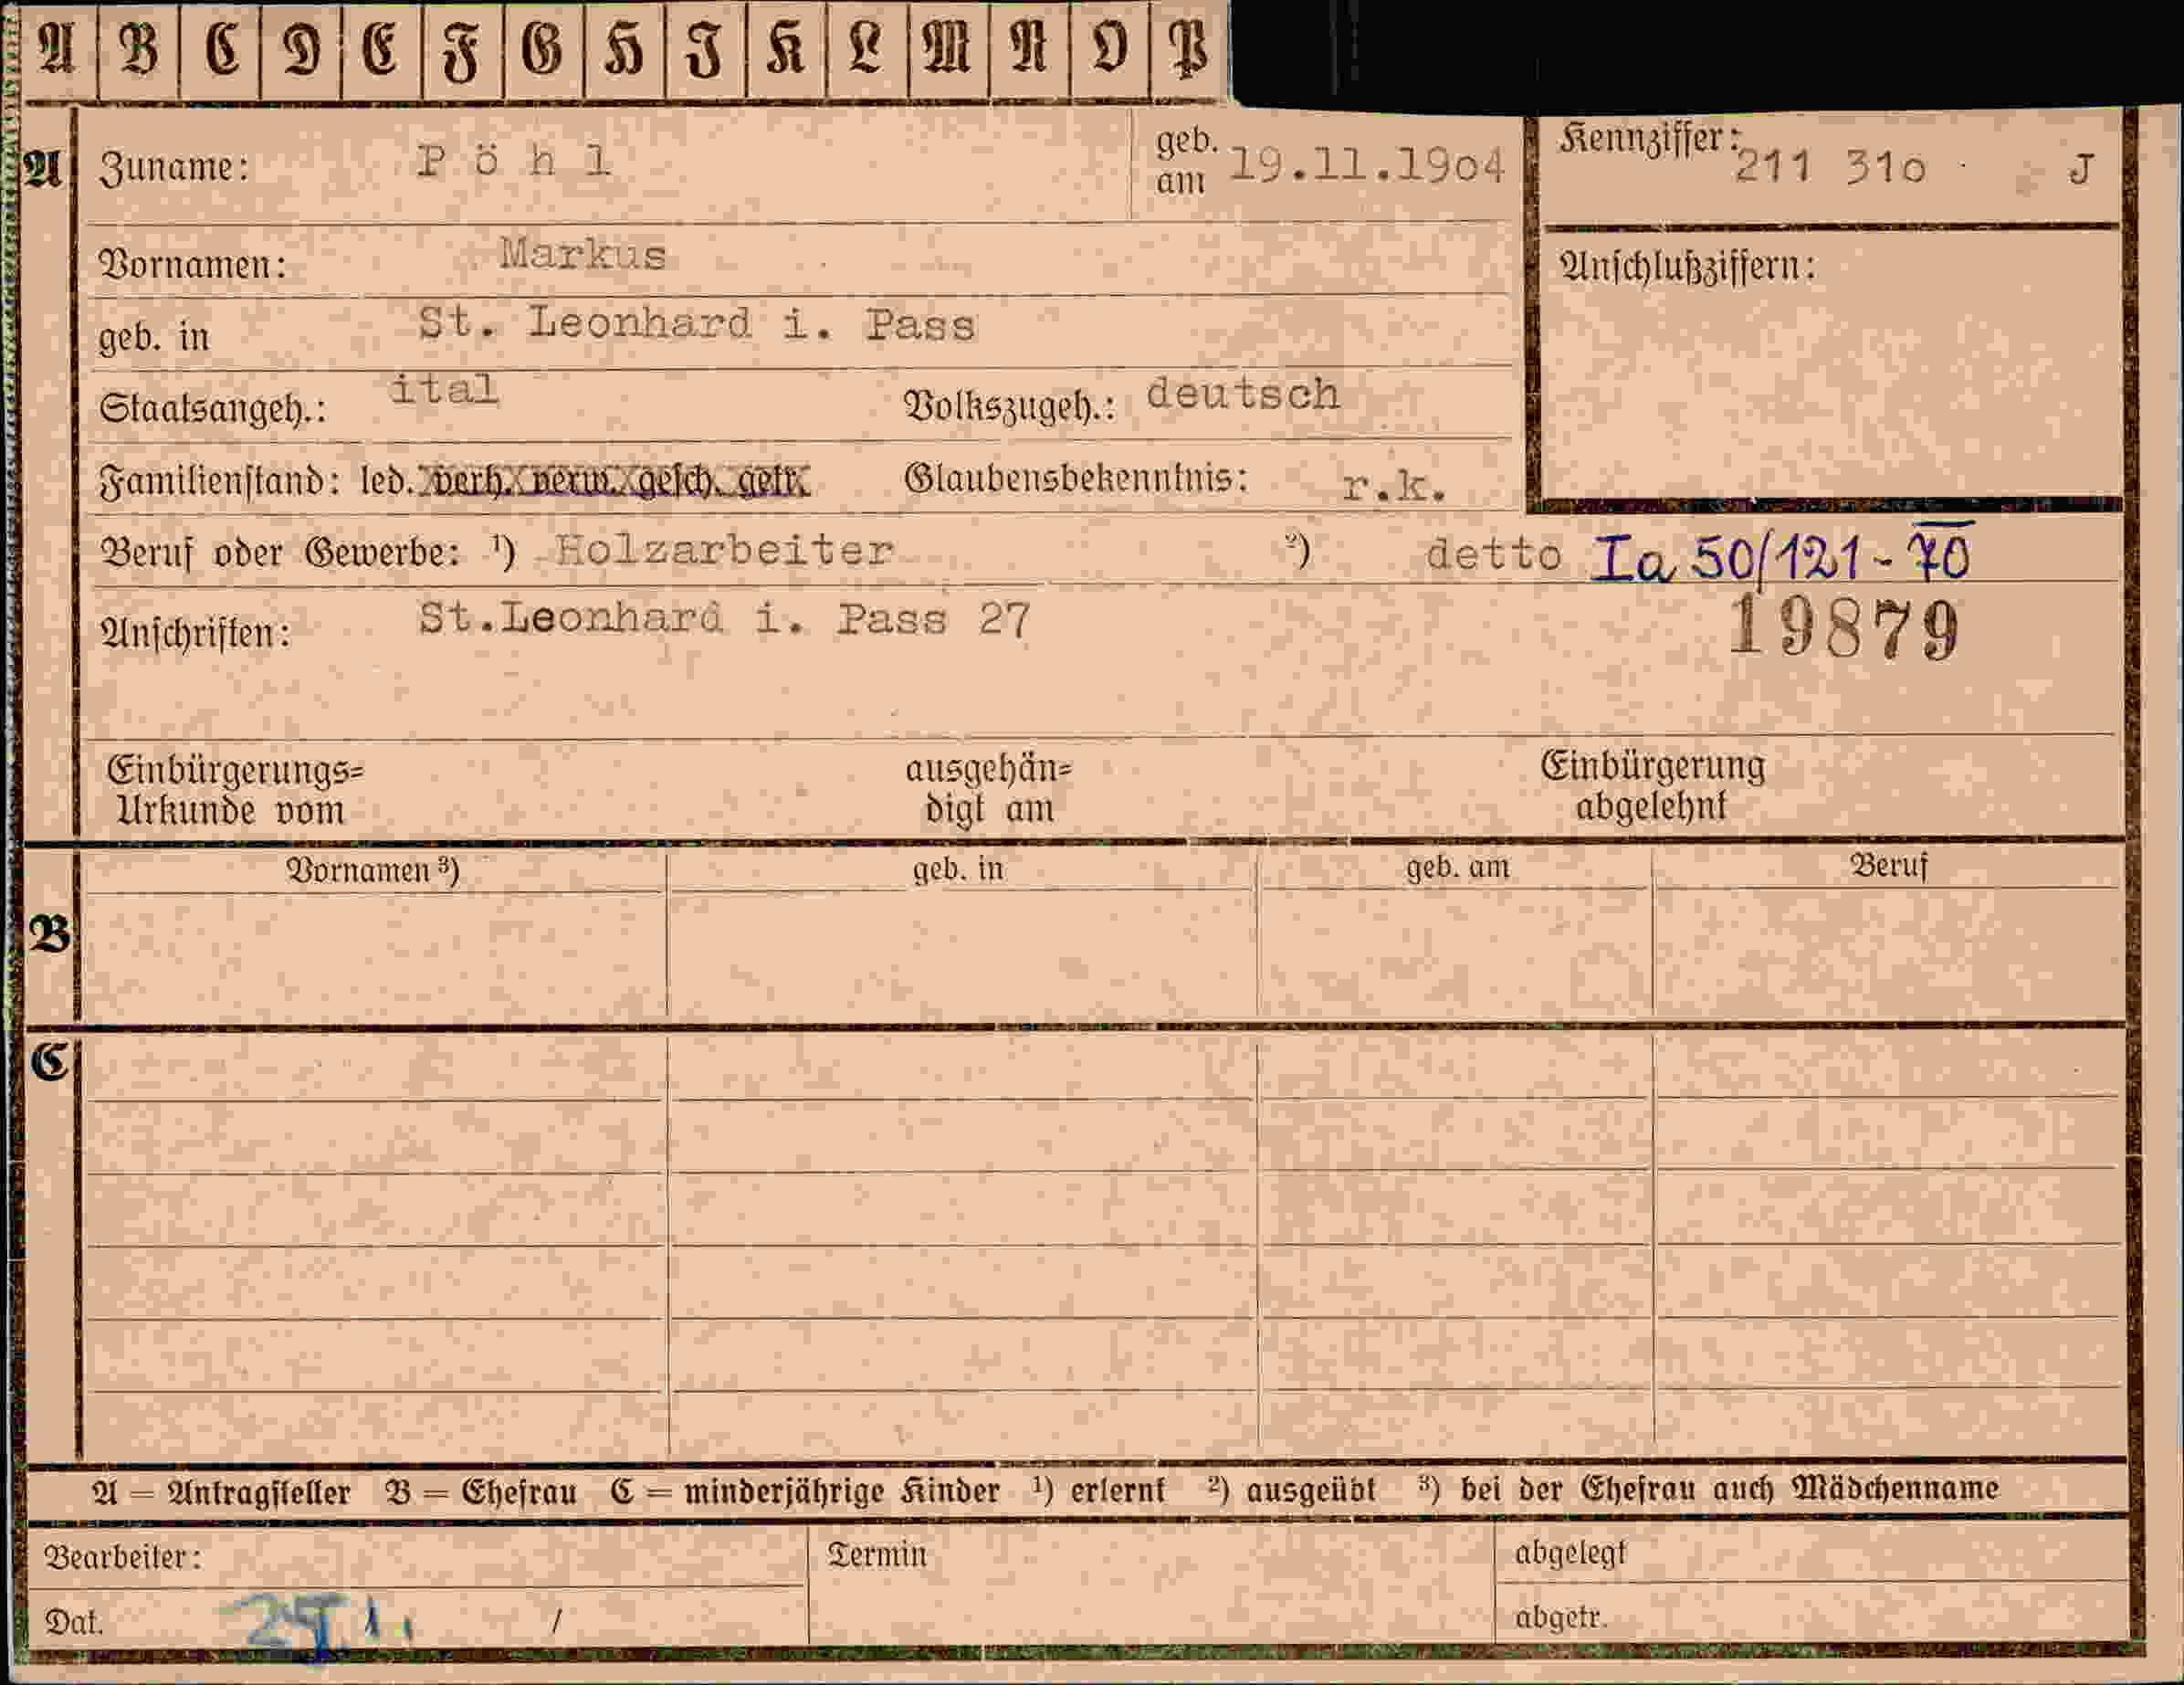 A B C D E F G H I K L M N O P
A Zuname: Pöhl geb. am 19.11.1904 Kennziffer: 211 310 J
Vornamen: Markus Anschlußziffern:
geb. in St. Leonhard i. Pass
Staatsangeh.: ital Volkszugeh.: deutsch
Familienstand: led. verh. verw. gesch. getr. Glaubensbekenntnis: r.k.
Beruf oder Gewerbe: ¹) Holzarbeiter ²) detto Ia 50/121-70
Anschriften: St.Leonhard i. Pass 27 19879
Einbürgerungs= ausgehän= Einbürgerung
Urkunde vom digt am abgelehnt
Vornamen ³) geb. in geb. am Beruf
B
C
A = Antragsteller B = Ehefrau C = minderjährige Kinder ¹) erlernt ²) ausgeübt ³) bei der Ehefrau auch Mädchenname
Bearbeiter: Termin abgelegt
Dat. / abgetr.